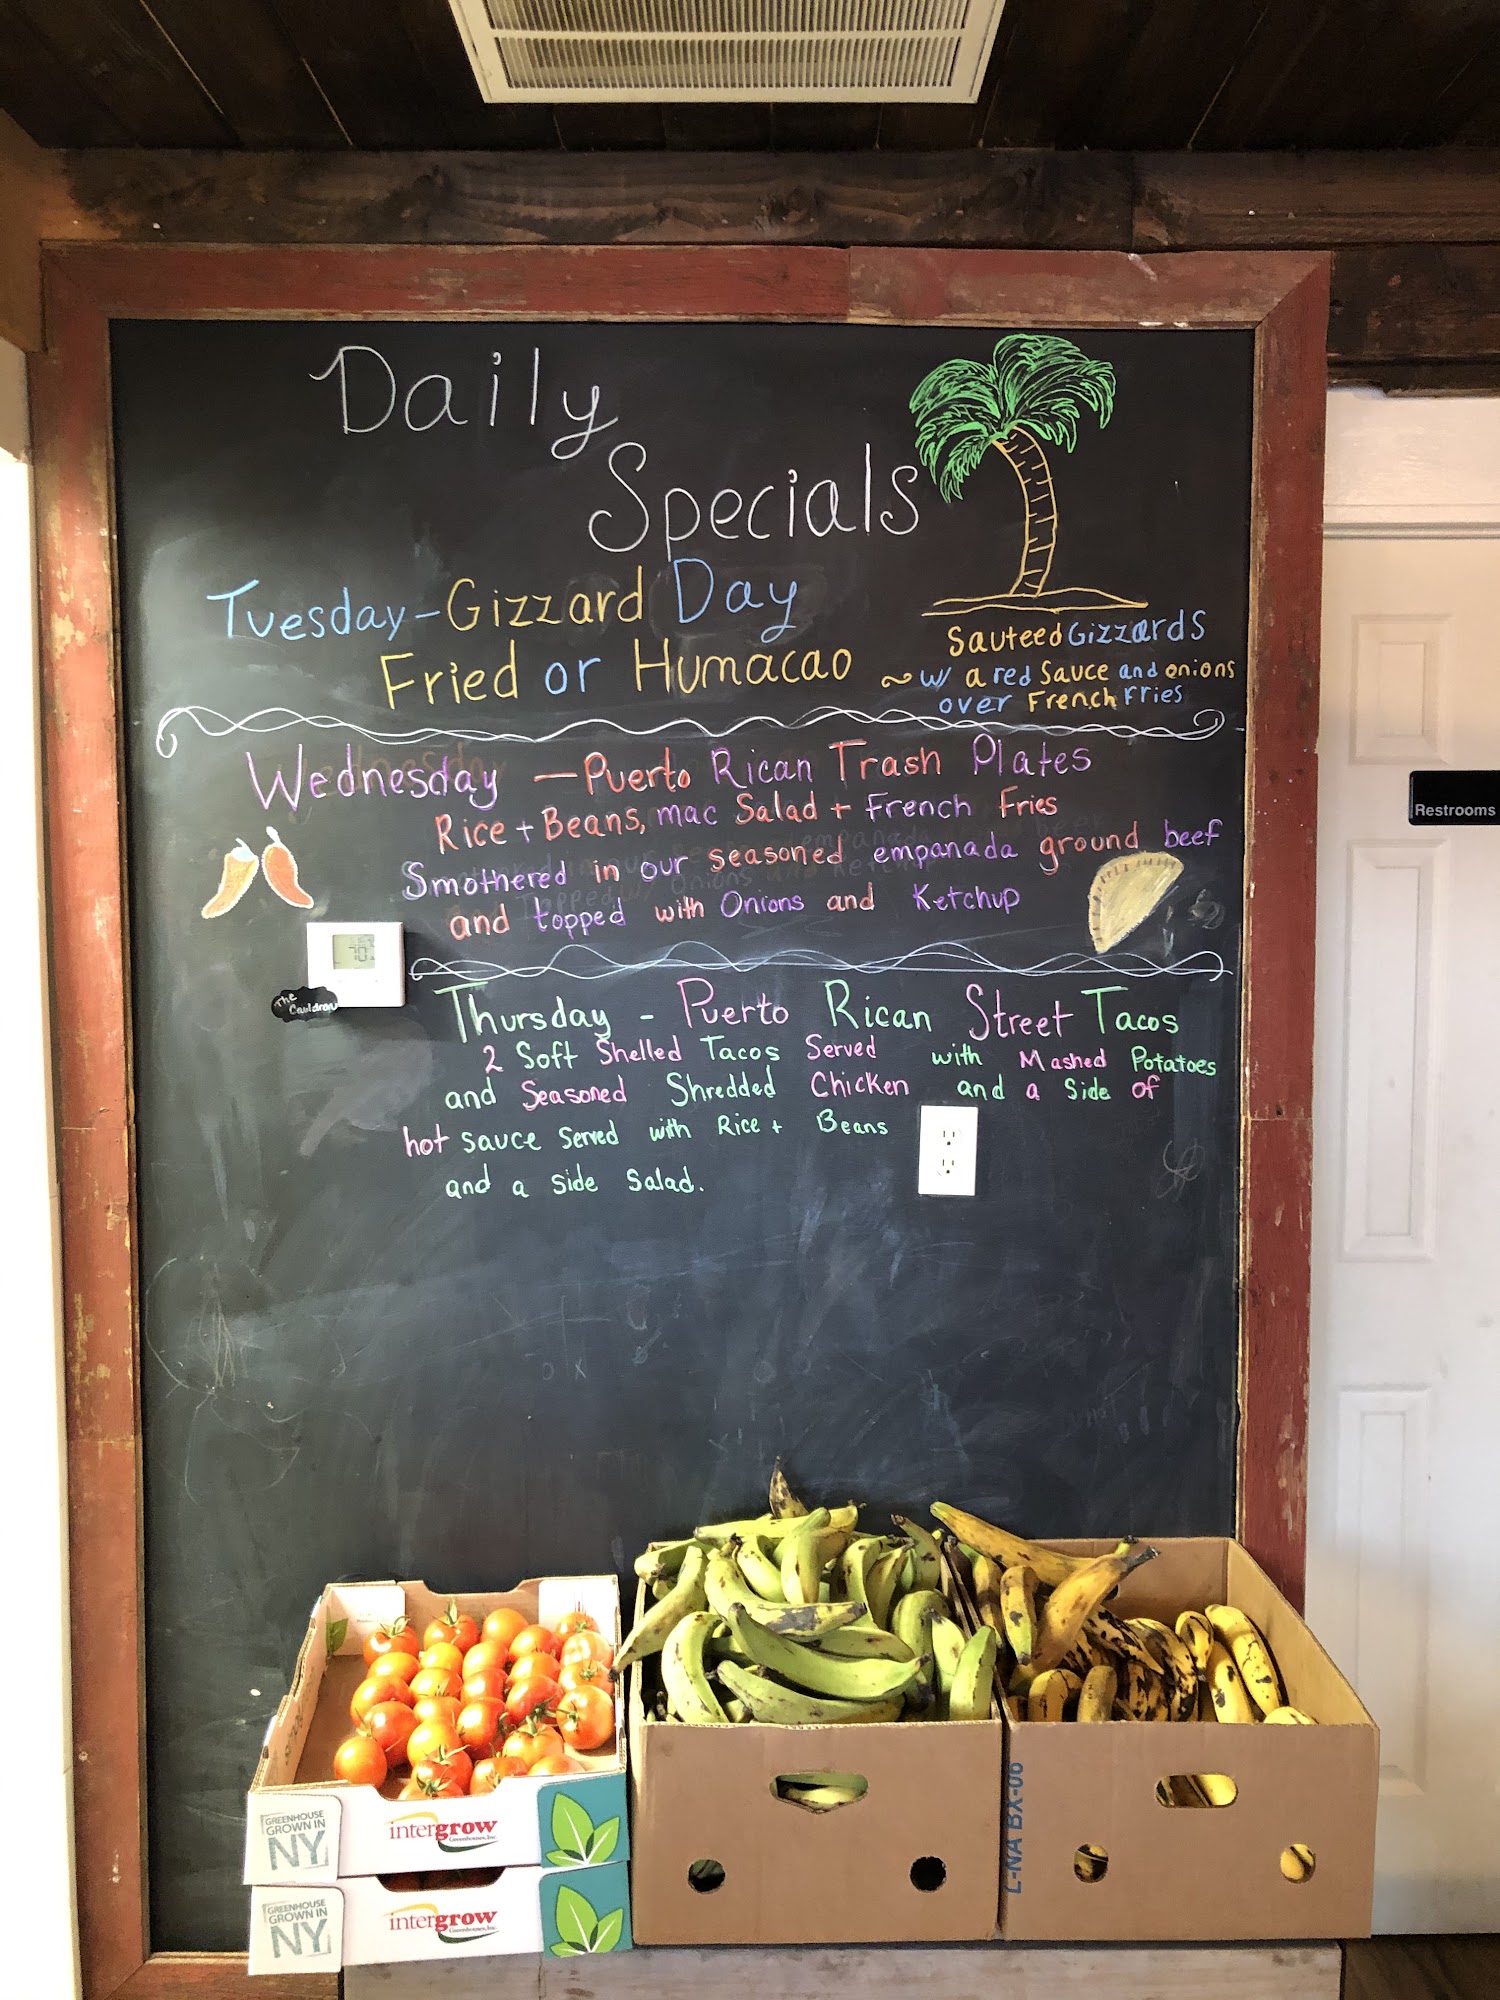 Daily
Specials
Tuesday - Gizzard Day
Fried or Humacao
Sauteed Gizzards
~ w/ a red Sauce and onions
over French Fries
Wednesday - Puerto Rican Trash Plates
Rice + Beans, mac Salad + French Fries
Smothered in our seasoned empanada ground beef
and topped with Onions and Ketchup
70
The
Cauldron
Thursday - Puerto Rican Street Tacos
2 Soft Shelled Tacos Served with Mashed Potatoes
and Seasoned Shredded Chicken and a Side of
hot sauce served with Rice + Beans
and a side salad.
Restrooms
GREENHOUSE
GROWN IN
NY
intergrow
Greenhouses, Inc.
GREENHOUSE
GROWN IN
NY
intergrow
Greenhouses, Inc.
L-NA BX-06